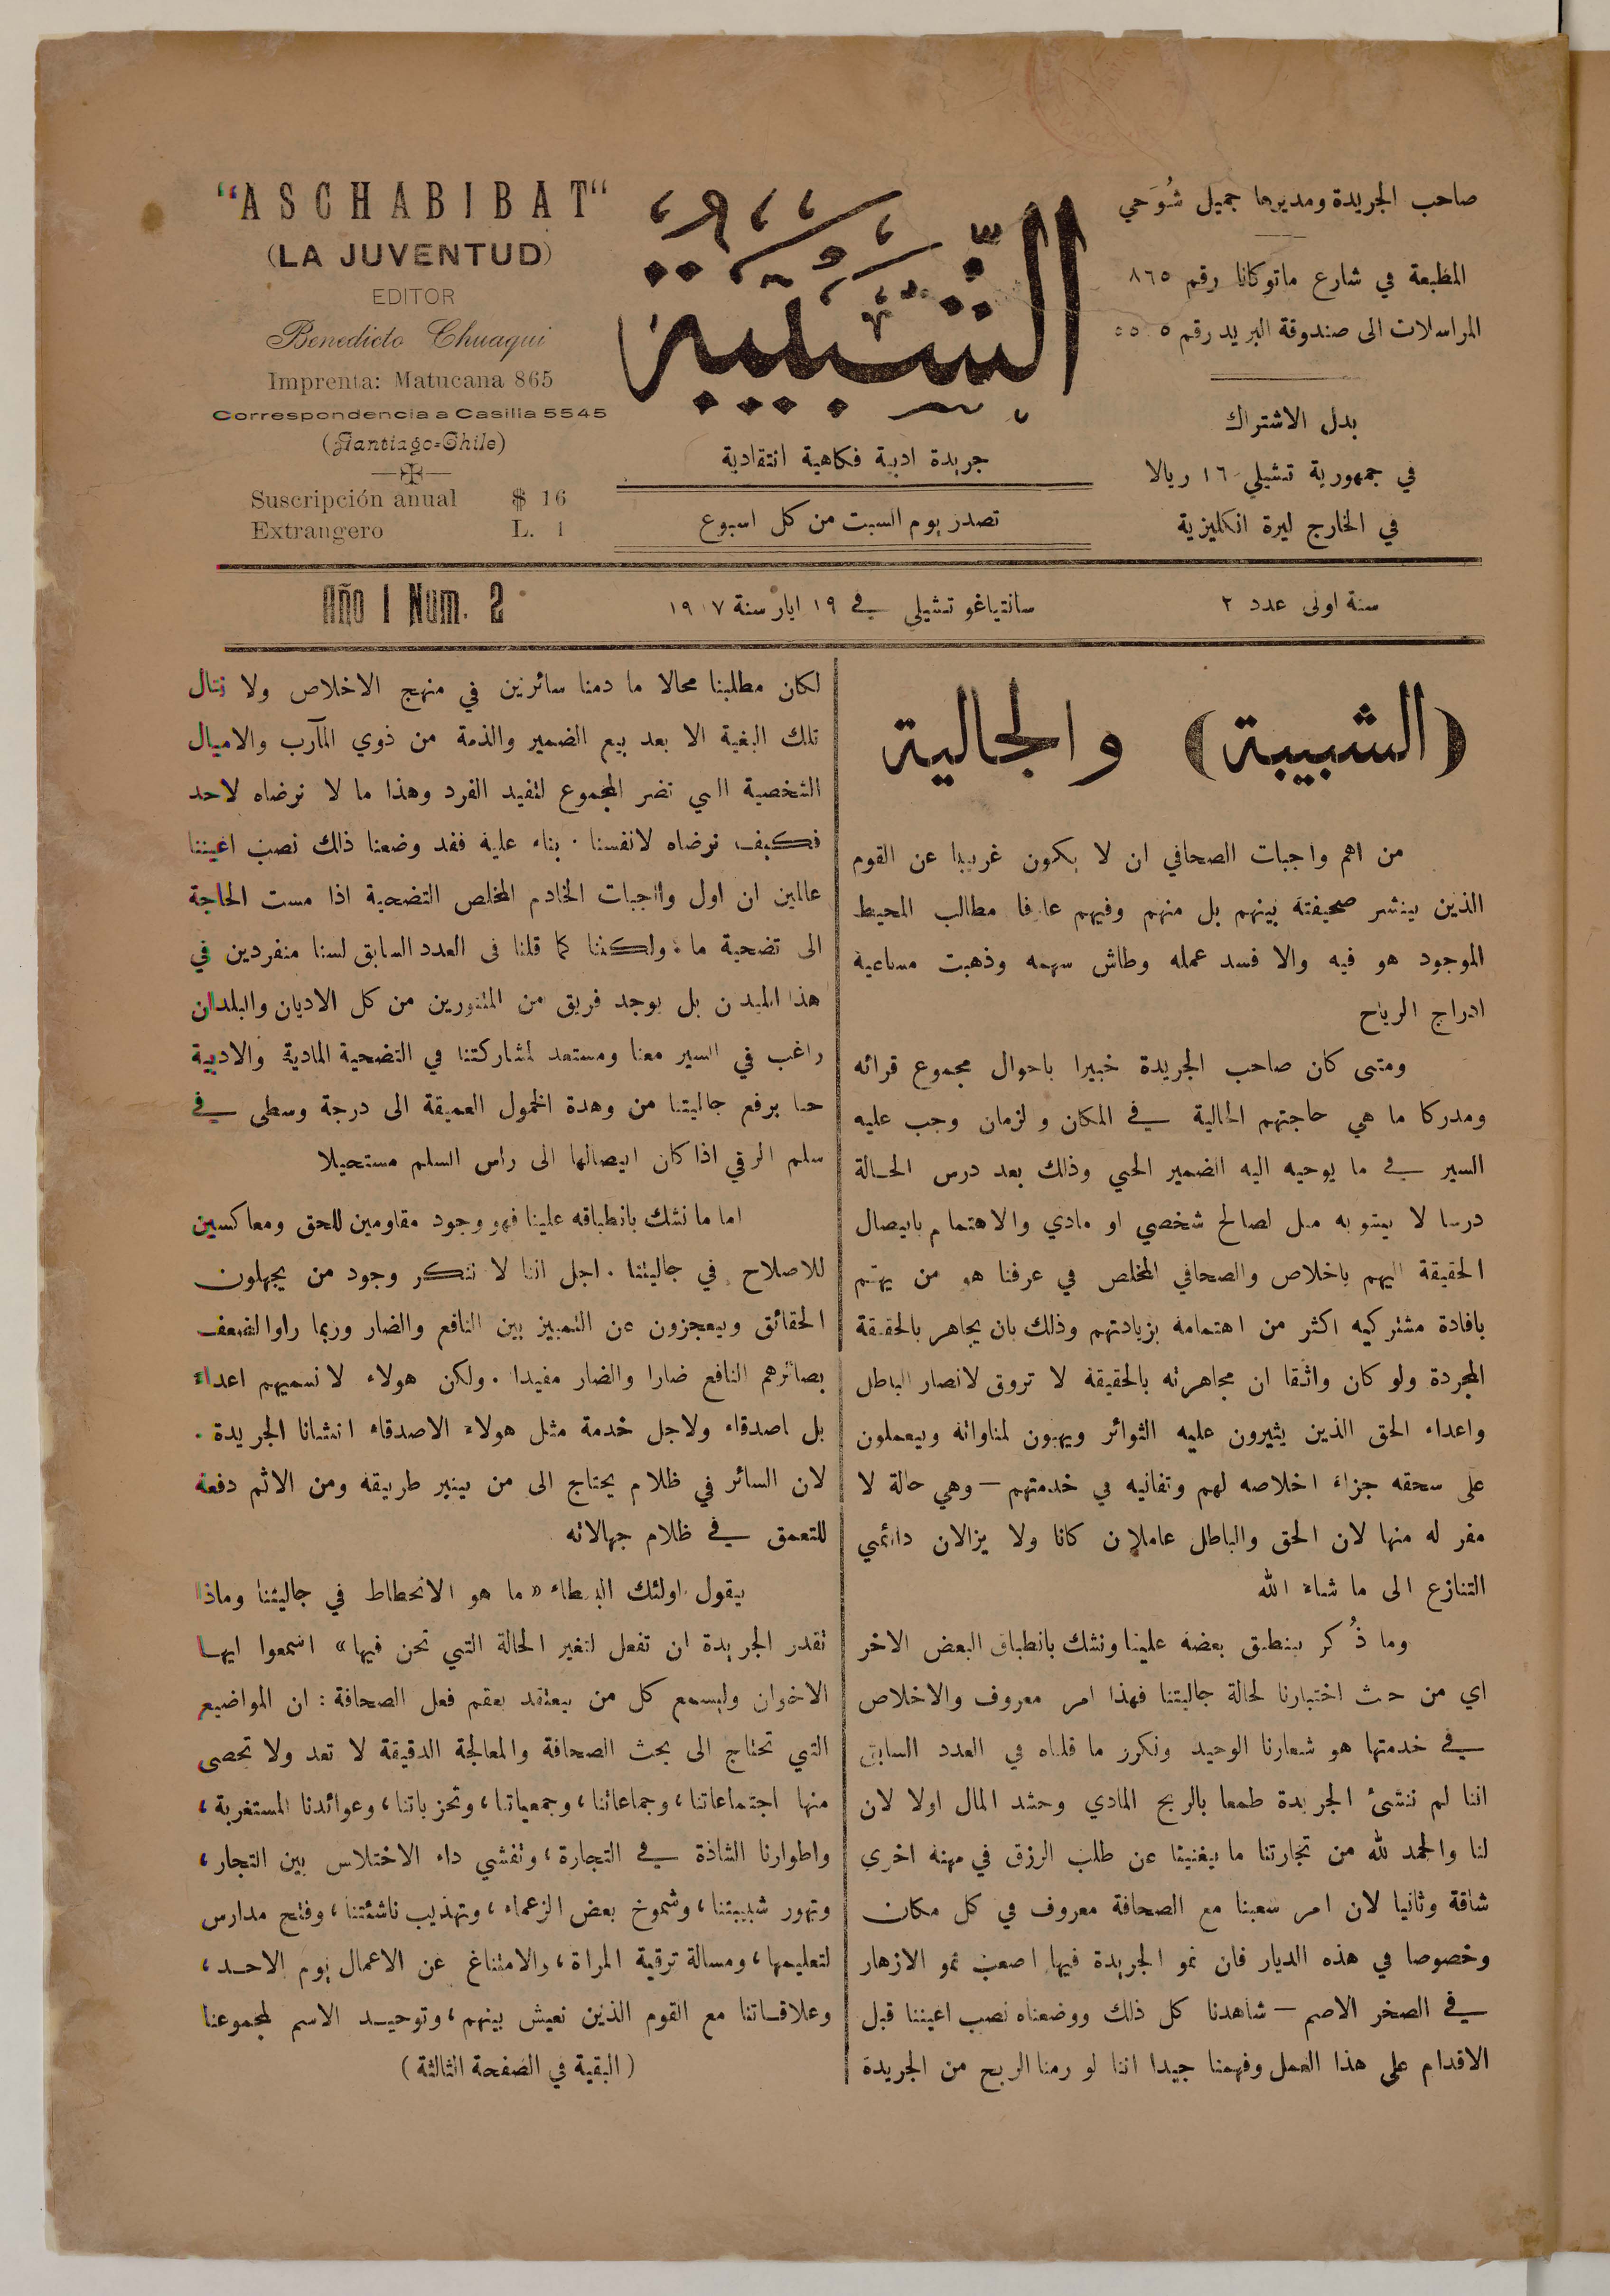 "ASCHABIBAT"
(LA JUVENTUD)
EDITOR
Benedicto Chuaqui
Imprenta: Matucana 865
Correspondencia a Casilla 5545
(Santiago=Chile)
Suscripción anual $ 16
Extrangero L. 1
الشبيبة
جريدة ادبية فكاهية انتقادية
تصدر يوم السبت من كل اسبوع
صاحب الجريدة ومديرها جميل شُوَحي
المطبعة في شارع ماتوكانا رقم ٨٦٥
المراسلات الى صندوقة البريد رقم
بدل الاشتراك
في جمهورية تشيلي ١٦ ريالا
في الخارج ليرة انكليزية
سنة اولى عدد ٢
سانتياغو تشيلي في ١٩ ايار سنة
Año I Num. 2
(الشبيبة) والجالية
من اهم واجبات الصحافي ان لا يكون غريبا عن القوم
الذين ينشر صحيفته بينهم بل منهم وفيهم عارفا مطالب المحيط
الموجود هو فيه والا فسد عمله وطاش سهمه وذهبت مساعيه
ادراج الرياح
ومتى كان صاحب الجريدة خبيرا باحوال مجموع قرائه
ومدركا ما هي حاجتهم الحالية في المكان و لزمان وجب عليه
السير في ما يوحيه اليه الضمير الحي وذلك بعد درس الحالة
درسا لا يشوبه ميل لصالح شخصي او مادي والاهتمام بايصال
الحقيقة اليهم باخلاص والصحافي المخلص في عرفنا هو من يهتم
بافادة مشتركيه اكثر من اهتمامه بزيادتهم وذلك بان يجاهر بالحقيقة
المجردة ولو كان واثقا ان مجاهرته بالحقيقة لا تروق لانصار الباطل
واعداء الحق الذين يثيرون عليه الثوائر ويهبون لمناواته ويعملون
على سحقه جزاء اخلاصه لهم وتفانيه في خدمتهم – وهي حالة لا
مفر له منها لان الحق والباطل عاملان كانا ولا يزالان دائمي
التنازع الى ما شاء الله
وما ذُكر ينطبق بعضه علينا ونشك بانطباق البعض الاخر
اي من حيث اختبارنا لحالة جاليتنا فهذا امر معروف والاخلاص
في خدمتها هو شعارنا الوحيد ونكرر ما قلناه في العدد السابق
اننا لم ننشئ الجريدة طمعا بالربح المادي وحشد المال اولا لان
لنا والحمد لله من تجارتنا ما يغنينا عن طلب الرزق في مهنة اخرى
شاقة وثانيا لان امر شعبنا مع الصحافة معروف في كل مكان
وخصوصا في هذه الديار فان نمو الجريدة فيها اصعب نمو الازهار
في الصخر الاصم – شاهدنا كل ذلك ووضعناه نصب اعيننا قبل
الاقدام على هذا العمل وفهمنا جيدا اننا لو رمنا الربح من الجريدة
لكان مطلبنا محالا ما دمنا سائرين في منهج الاخلاص ولا ننال
تلك البغية الا بعد بيع الضمير والذمة من ذوي المآرب والاميال
الشخصية التي تضر المجموع لتفيد الفرد وهذا ما لا نرضاه لاحد
فكيف نرضاه لانفسنا . بناء عليه فقد وضعنا ذلك نصب اعيننا
عالمين ان اول واجبات الخادم المخلص التضحية اذا مست الحاجة
الى تضحية ما ، ولكننا كما قلنا في العدد السابق لسنا منفردين في
هذا الميدن بل يوجد فريق من المتنورين من كل الاديان والبلدان
راغب في السير معنا ومستعد لمشاركتنا في التضحية المادية والادبية
حبا برفع جاليتنا من وهدة الخمول العميقة الى درجة وسطى في
سلم الرقي اذا كان ايصالها الى راس السلم مستحيلا
اما ما نشك بانطباقه علينا فهو وجود مقاومين للحق ومعاكسين
للاصلاح في جاليتنا . اجل اننا لا ننكر وجود من يجهلون
الحقائق ويعجزون عن التمييز بين النافع والضار وربما راوا لضعف
بصائرهم النافع ضارا والضار مفيدا . ولكن هولاء لا نسميهم اعداء
بل اصدقاء ولاجل خدمة مثل هولاء الاصدقاء انشانا الجريدة .
لان السائر في ظلام يحتاج الى من ينير طريقه ومن الاثم دفعه
للتعمق في ظلام جهالاته
يقول اولئك البسطاء « ما هو الانحطاط في جاليتنا وماذا
تقدر الجريدة ان تفعل لتغير الحالة التي نحن فيها » اسمعوا ايها
الاخوان وليسمع كل من يعتقد بعقم فعل الصحافة : ان المواضيع
التي تحتاج الى بحث الصحافة والمعالجة الدقيقة لا تعد ولا تحصى
منها اجتماعاتنا ، وجماعاتنا ، وجمعياتنا ، وتحزباتنا ، وعوائدنا المستغربة ،
واطوارنا الشاذة في التجارة ، وتفشي داء الاختلاس بين التجار ،
وتهور شبيبتنا ، وشموخ بعض الزعماء ، وتهذيب ناشئتنا ، وفتح مدارس
لتعليمها ، ومسالة ترقية المراة ، والامتناع عن الاعمال يوم الاحد ،
وعلاقاتنا مع القوم الذين نعيش بينهم ، وتوحيد الاسم لمجموعنا
( البقية في الصفحة الثالثة )